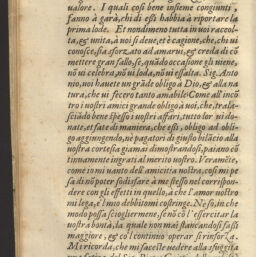 ualore. I quali così bene insieme congiunti,
fanno à garà, chi di essi habbia à riportare la
prima lode. Et nondimeno tutta in uoi raccol-
ta, & unita, à uoi si deue, et è cagione, che, chi ui
conosce, sia sforzato ad amarui, & creda di cō
mettere gran fallo, se, quādo occasione gli uiene,
nō ui celebra, nō ui loda, nō ui essalta. Sig. Anto
nio, uoi hauete un grāde obligo à Dio, & alla na
tura, che ui fecero tanto amabile. Come all'incō
tro i uostri amici grande obligo à uoi, che, trala-
sciādo bene spesso i uostri affari, tutto lor ui do-
nate, et fate di maniera, che essi, obligo ad obli-
go aggiungendo, ne pagatori di giusto bilācio alla
uostra cortesia giamai dimostrādosi, paiano cō
tinuamente ingrati al merito uostro. Veramēte,
come io mi uanto dell'amicitia uostra, così mi pe
sa di nō poter sodisfare à me stesso nel corrispon-
dere con gli effetti in quello, à che l'amor uostro
mi lega, e'l mio debbitomi costringe. Ne so, in che
modo possa sciogliermene, se nō cō l'essercitar la
uostra bontà, la quale non mai stancandosi fassi
maggiore, & co'l continuo operar si rinforza.
Mi ricorda, che mi faceste uedere alla sfuggita